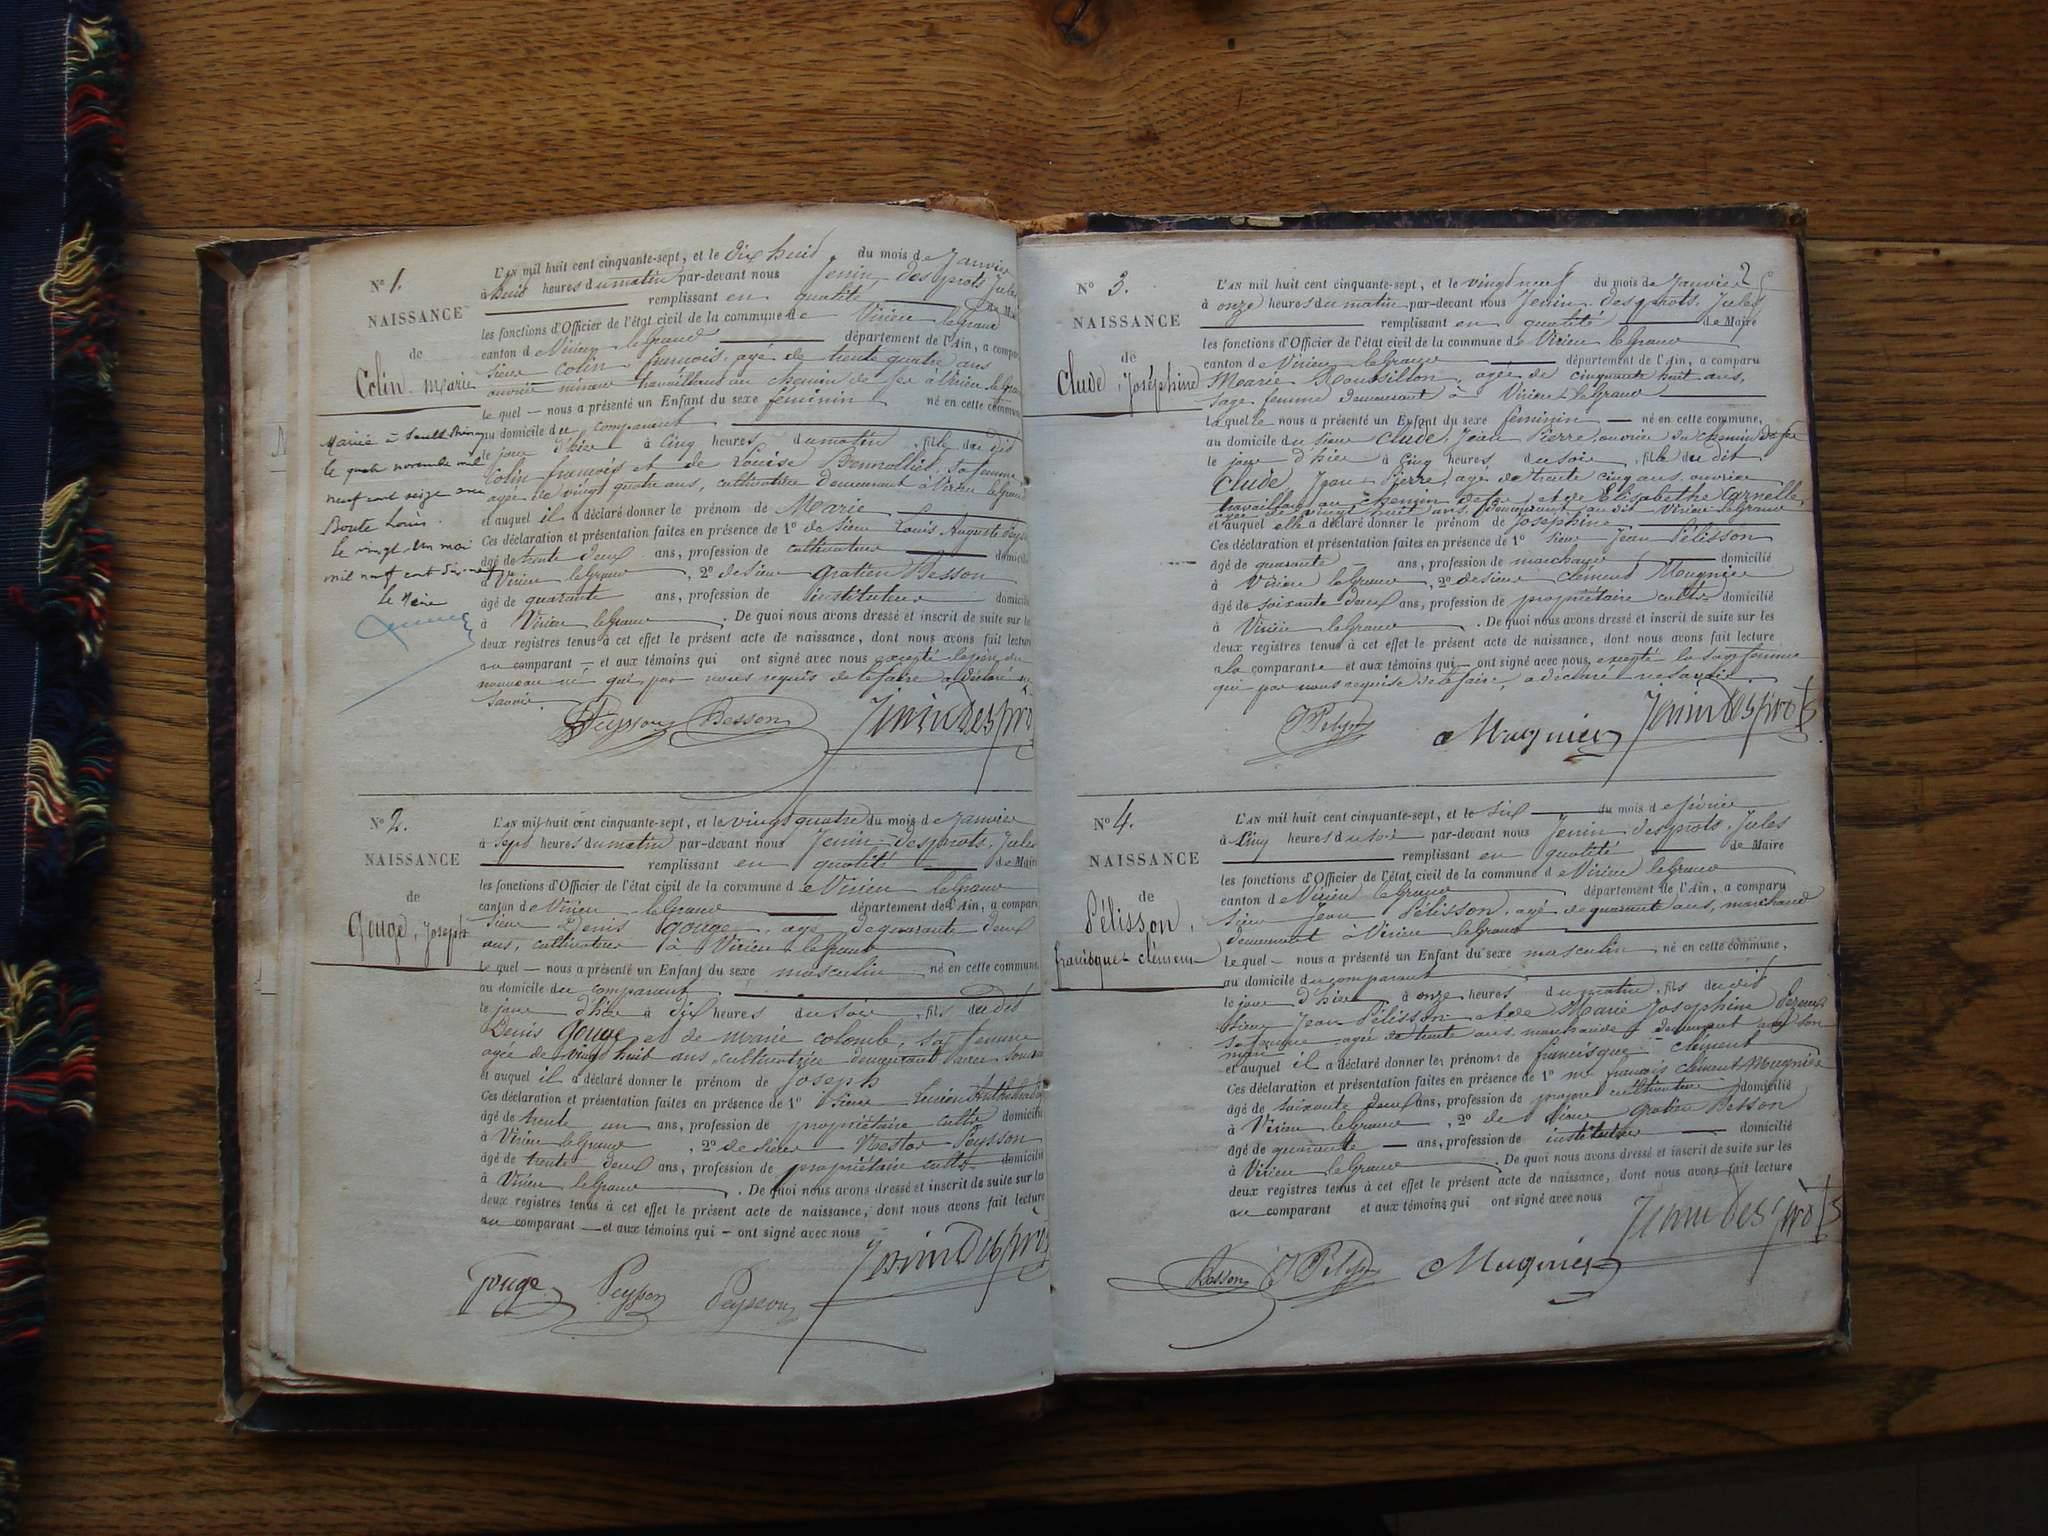 N° 1.
NAISSANCE
de
Colin Marie
Marié à
le quatre novembre mil
neuf cent seize avec
Boute Louis.
le vingt un mai
mil neuf cent
Le Maire
L'AN mil huit cent cinquante-sept, et le dix huit du mois de Janvier
à huit heures du matin par-devant nous Jenin, desprots, Jules
remplissant en qualité de Ma
les fonctions d'Officier de l'état civil de la commune de Virieu legrand
canton de Virieu legrand département de l'Ain, a compar
sieur Colin françois, agé de trente quatre ans
ouvrier mineur travaillant au chemin de fer à Virieu le Gran
le quel — nous a présenté un Enfant du sexe feminin né en cette commun
au domicile du comparant
le jour d'hier à cinq heures du matin, fille du dit
Colin françois et de Louise sa femme
agée de vingt quatre ans, cultivatrice demeurant à Virieu legrand
et auquel il a déclaré donner le prénom de Marie
Ces déclaration et présentation faites en présence de 1° de sieur Louis Auguste Peyss
âgé de trente deux ans, profession de cultivateur domicilié
à Virieu legrand, 2° de sieur gratien Besson
âgé de quarante ans, profession de instituteur domicilié
à Virieu legrand. De quoi nous avons dressé et inscrit de suite sur le
deux registres tenus à cet effet le présent acte de naissance, dont nous avons fait lecture
au comparant — et aux témoins qui ont signé avec nous excepté le père du
nouveau né qui par nous requis de le faire a déclaré ne
savoir.
Peysson Besson Jenin desprots
N° 2.
NAISSANCE
de
Gouge, Joseph
L'AN mil huit cent cinquante-sept, et le vingt quatre du mois de Janvier
à sept heures du matin par-devant nous Jenin desprots, Jules
remplissant en qualité de Maire
les fonctions d'Officier de l'état civil de la commune de Virieu legrand
canton de Virieu legrand département de l'Ain, a comparu
sieur Denis gouge, agé de quarante deux
ans, cultivateur à Virieu legrand
le quel — nous a présenté un Enfant du sexe masculin né en cette commune,
au domicile du comparant
le jour d'hier à dix heures du soir, fils du dit
Denis gouge et de marie colomb, sa femme
agée de vingt huit ans, cultivatrice demeurant avec son mari
et auquel il a déclaré donner le prénom de Joseph
Ces déclaration et présentation faites en présence de 1° sieur Lucien
âgé de trente un ans, profession de propriétaire cultr domicilié
à Virieu legrand, 2° de sieur Nestor Peysson
âgé de trente deux ans, profession de propriétaire cultr domicilié
à Virieu legrand. De quoi nous avons dressé et inscrit de suite sur la
deux registres tenus à cet effet le présent acte de naissance, dont nous avons fait lecture
au comparant — et aux témoins qui — ont signé avec nous
Jenin desprots
Gouge Peysson Peysson
2
N° 3.
NAISSANCE
de
Clude, Joséphine
L'AN mil huit cent cinquante-sept, et le vingt neuf du mois de Janvier
à onze heures du matin par-devant nous Jenin desprots, Jules
remplissant en qualité de Maire
les fonctions d'Officier de l'état civil de la commune de Virieu legrand
canton de Virieu legrand département de l'Ain, a comparu
Marie Roussillon, agée de cinquante huit ans,
sage femme demeurant à Virieu legrand
La quelle nous a présenté un Enfant du sexe feminin — né en cette commune,
au domicile du sieur Clude, Jean Pierre, ouvrier du chemin de fer
le jour d'hier à cinq heures du soir, fille du dit
Clude, Jean Pierre, agé de trente cinq ans, ouvrier
travaillant au chemin de fer, et de Elisabethe Carnelle,
agée de vingt huit ans, demeurant au dit Virieu legrand
et auquel elle a déclaré donner le prénom de Josephine
Ces déclaration et présentation faites en présence de 1° sieur Jean Pélisson
âgé de quarante ans, profession de marchand domicilié
à Virieu legrand, 2° de sieur clément Mugnier
âgé de soixante deux ans, profession de propriétaire cultr domicilié
à Virieu legrand. De quoi nous avons dressé et inscrit de suite sur les
deux registres tenus à cet effet le présent acte de naissance, dont nous avons fait lecture
a la comparante et aux témoins qui — ont signé avec nous, excepté la sage femme
qui par nous requise de le faire, a déclaré ne savoir.
Mugnier Jenin desprots
N° 4.
NAISSANCE
de
Pélisson,
francisque clément
L'AN mil huit cent cinquante-sept, et le six du mois de février
à cinq heures du soir par-devant nous Jenin desprots, Jules
remplissant en qualité de Maire
les fonctions d'Officier de l'état civil de la commune de Virieu legrand
canton de Virieu legrand département de l'Ain, a comparu
sieur Jean Pélisson, agé de quarante ans, marchand
demeurant à Virieu legrand
Le quel — nous a présenté un Enfant du sexe masculin né en cette commune,
au domicile du comparant
le jour d'hier à onze heures du matin, fils du dit
sieur Jean Pélisson et de Marie Josephine
sa femme, agée de trente ans, marchande, demeurant avec son
mari
et auquel il a déclaré donner les prénoms de francisque clément
Ces déclaration et présentation faites en présence de 1° mr francois clément Mugnier
âgé de soixante deux ans, profession de cultivateur domicilié
à Virieu legrand, 2° de sieur gratien Besson
âgé de quarante — ans, profession de instituteur domicilié
à Virieu legrand. De quoi nous avons dressé et inscrit de suite sur les
deux registres tenus à cet effet le présent acte de naissance, dont nous avons fait lecture
au comparant et aux témoins qui ont signé avec nous
Jenin desprots
Besson Mugnier